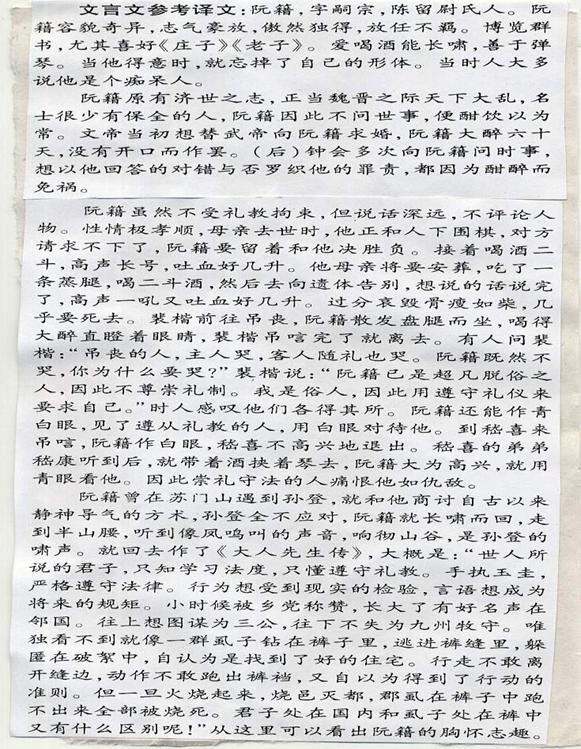 文言文参考译文：阮籍，字嗣宗，陈留尉氏人。阮
籍容貌奇异，志气豪放，傲然独得，放任不羁。博览群
书，尤其喜好《庄子》《老子》。爱喝酒能长啸，善于弹
琴。当他得意时，就忘掉了自己的形体。当时人大多
说他是个痴呆人。
阮籍原有济世之志，正当魏晋之际天下大乱，名
士很少有保全的人，阮籍因此不问世事，便酣饮以为
常。文帝当初想替武帝向阮籍求婚，阮籍大醉六十
天，没有开口而作罢。（后）钟会多次向阮籍问时事，
想以他回答的对错与否罗织他的罪责，都因为酣醉而
免祸。
阮籍虽然不受礼教拘束，但说话深远，不评论人
物。性情极孝顺，母亲去世时，他正和人下围棋，对方
请求不下了，阮籍要留着和他决胜负。接着喝酒二
斗，高声长号，吐血好几升。他母亲将要安葬，吃了一
条蒸腿，喝二斗酒，然后去向遗体告别，想说的话说完
了，高声一吼又吐血好几升。过分哀毁骨瘦如柴，几
乎要死去。裴楷前往吊丧，阮籍散发盘腿而坐，喝得
大醉直瞪着眼睛，裴楷吊唁完了就离去。有人问裴
楷：“吊丧的人，主人哭，客人随礼也哭。阮籍既然不
哭，你为什么要哭？”裴楷说：“阮籍已是超凡脱俗之
人，因此不尊崇礼制。我是俗人，因此用遵守礼仪来
要求自己。”时人感叹他们各得其所。阮籍还能作青
白眼，见了遵从礼教的人，用白眼对待他。到嵇喜来
吊唁，阮籍作白眼，嵇喜不高兴地退出。嵇喜的弟弟
嵇康听到后，就带着酒挟着琴去，阮籍大为高兴，就用
青眼看他。因此崇礼守法的人痛恨他如仇敌。
阮籍曾在苏门山遇到孙登，就和他商讨自古以来
静神导气的方术，孙登全不应对，阮籍就长啸而回，走
到半山腰，听到像凤鸣叫的声音，响彻山谷，是孙登的
啸声。就回去作了《大人先生传》，大概是：“世人所
说的君子，只知学习法度，只懂遵守礼教。手执玉圭，
严格遵守法律。行为想受到现实的检验，言语想成为
将来的规矩。小时候被乡党称赞，长大了有好名声在
邻国。往上想图谋为三公，往下不失为九州牧守。唯
独看不到就像一群虱子钻在裤子里，逃进裤缝里，躲
匿在破絮中，自认为是找到了好的住宅。行走不敢离
开缝边，动作不敢跑出裤裆，又自以为得到了行动的
准则。但一旦火烧起来，烧邑灭都，群虱在裤子中跑
不出来全部被烧死。君子处在国内和虱子处在裤中
又有什么区别呢！”从这里可以看出阮籍的胸怀志趣。